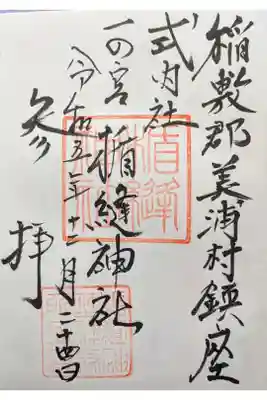 稲敷郡美浦村鎮座
式内社
一の宮 楯縫神社
令和五年十二月二十四日
参拝